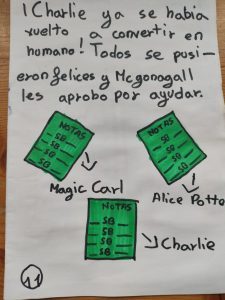 ¡Charlie ya se habia
vuelto a convertir en
humano! Todos se pusi-
eron felices y Mcgonagall
les aprobo por ayudar.
NOTAS
SB
SB
SB
SB
NOTAS
SB
SB
SB
SB
Magic Carl
Alice Potte
NOTAS
SB
SB
SB
SB
Charlie
11